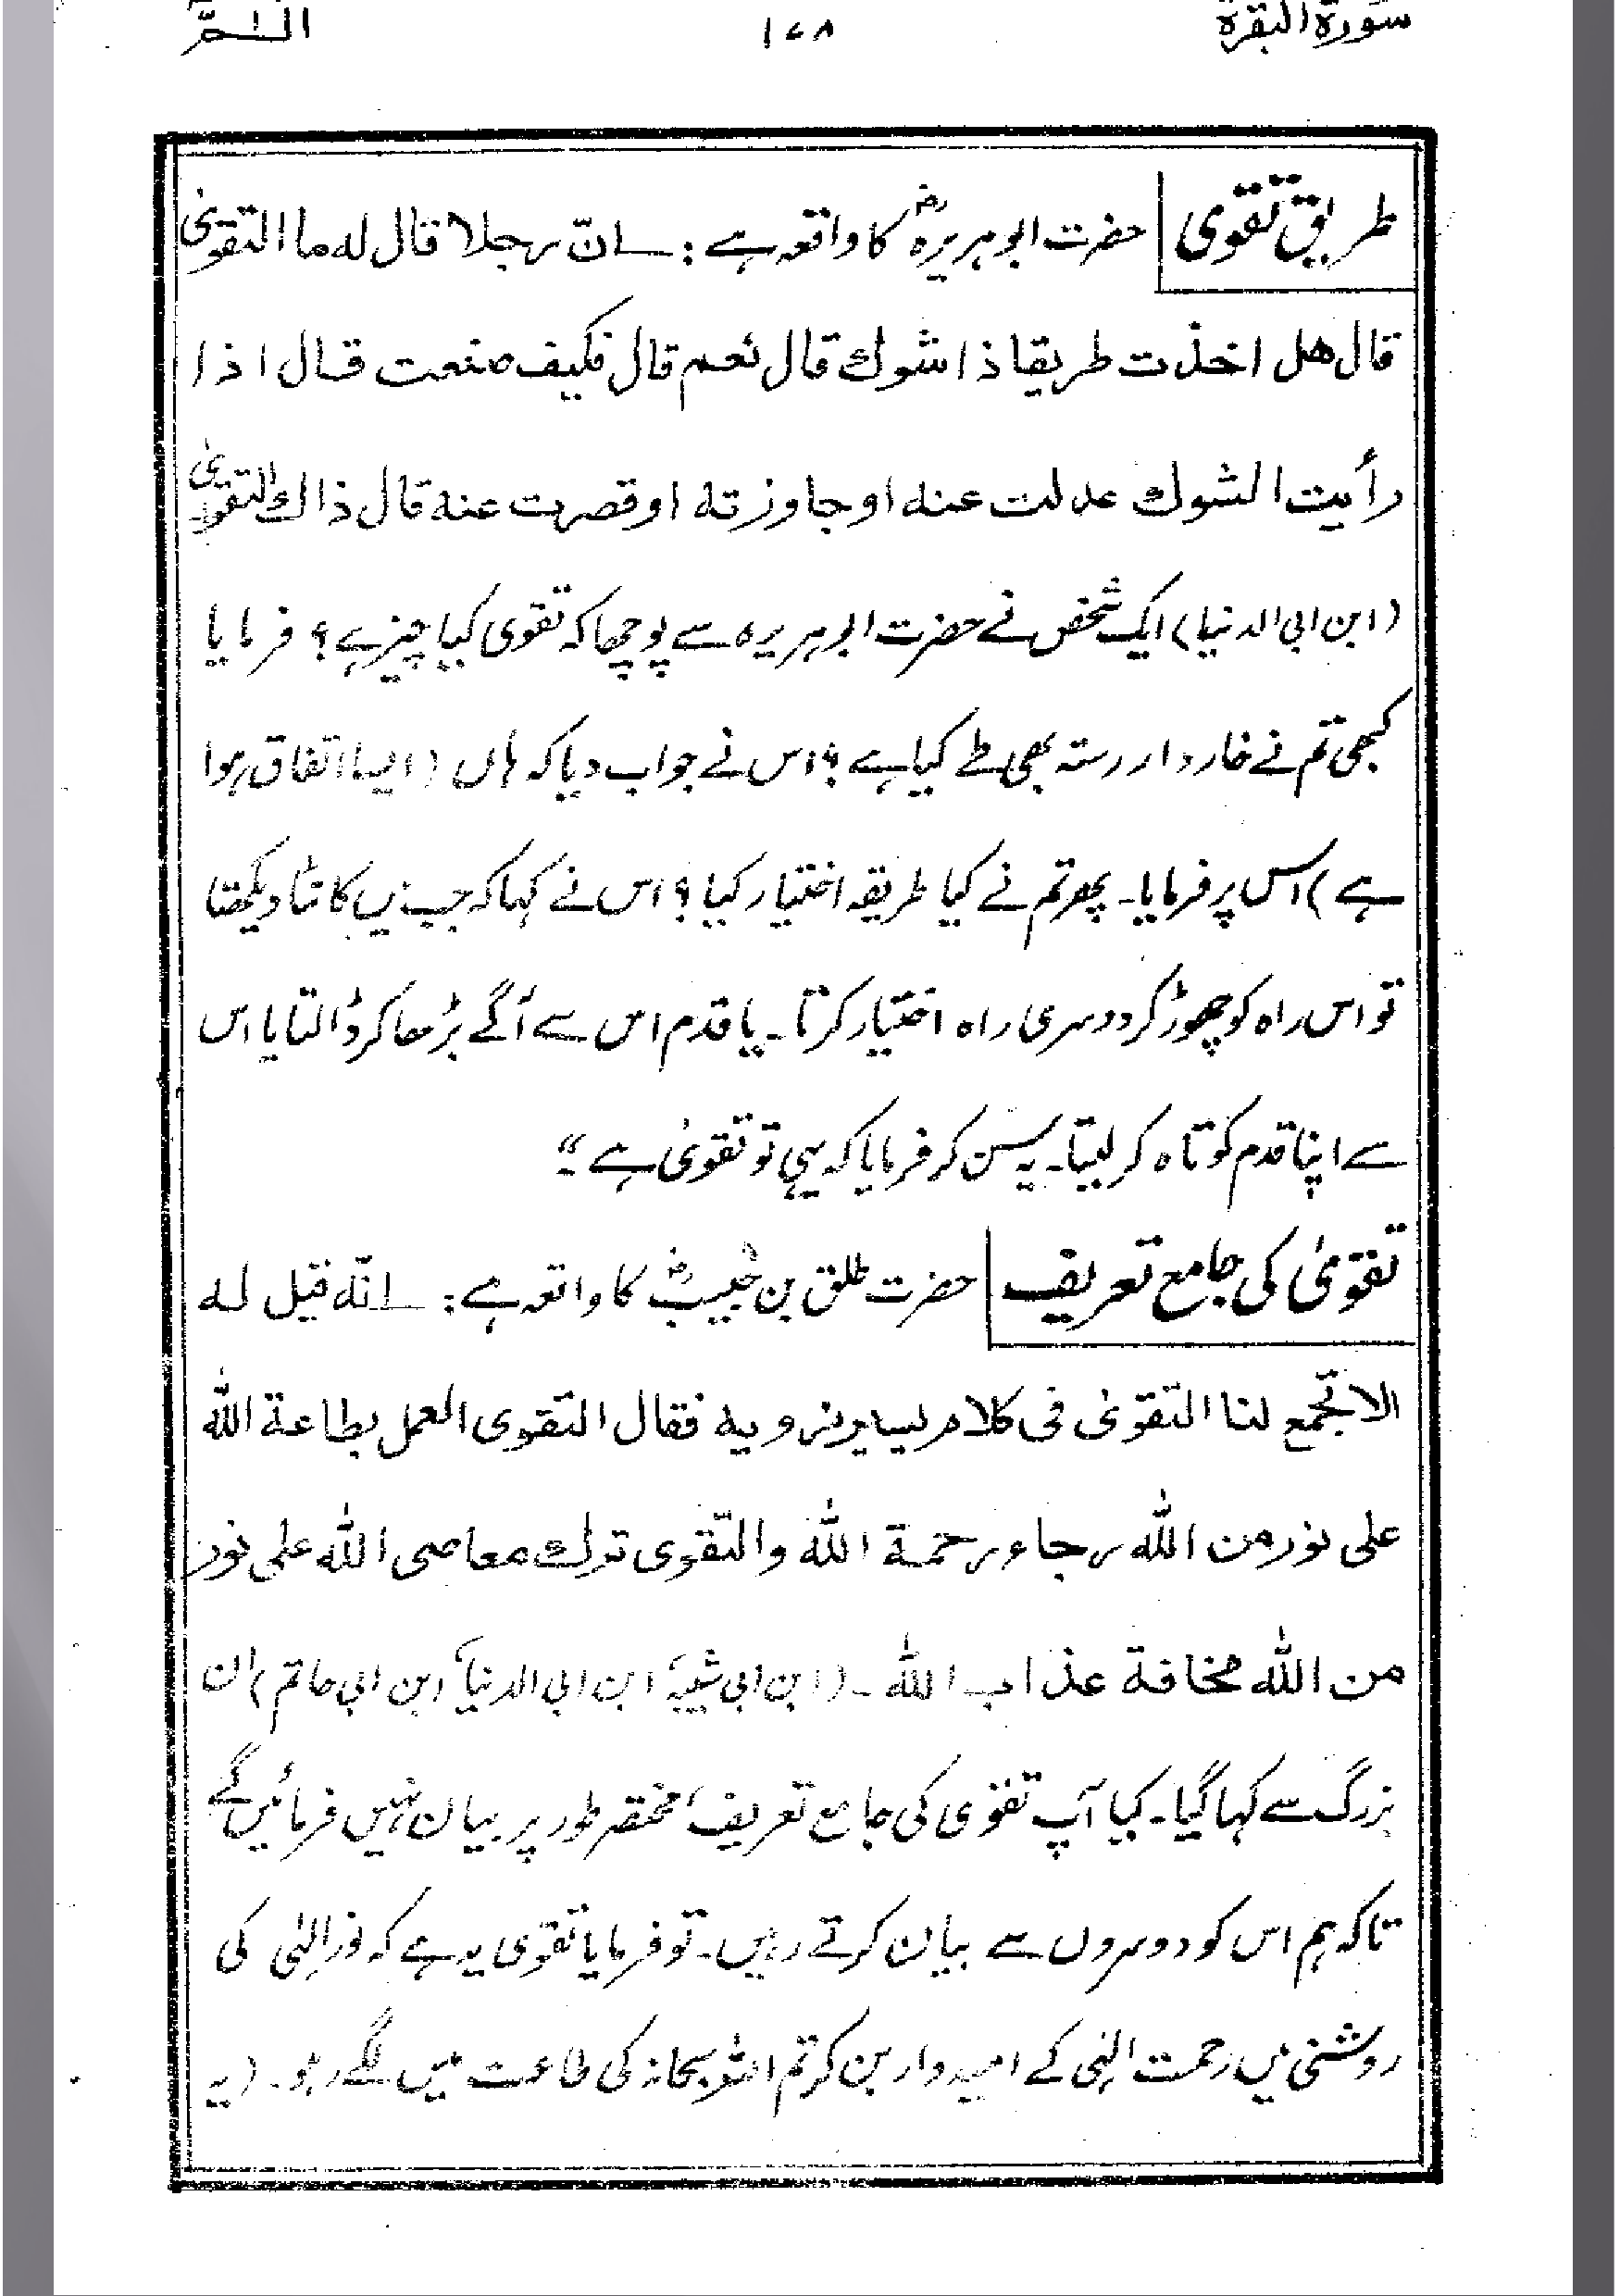 سورة البقرة ۱۷۸ الٓـمّٓ
طریق تقوی حضرت ابوہریرہؓ کا واقعہ ہے: ــ انّ رجلا قال له ما التقویٰ
قال هل اخذت طریقا ذا شوك قال نعم قال فکیف صنعت قال اذا
رأیت الشوك عدلت عنه او جاوزته او قصرت عنه قال ذاك التقویٰ
(ابن ابی الدنیا) ایک شخص نے حضرت ابوہریرہ سے پوچھا کہ تقوی کیا چیز ہے؟ فرمایا
کبھی تم نے خاردار رستہ بھی طے کیا ہے؟ اس نے جواب دیا کہ ہاں (ایسا اتفاق ہوا
ہے) اس پر فرمایا۔ پھر تم نے کیا طریقہ اختیار کیا؟ اس نے کہا کہ جب میں کانٹا دیکھتا
تو اس راہ کو چھوڑ کر دوسری راہ اختیار کرتا۔ یا قدم اس سے آگے بڑھا کر ڈالتا یا اس
سے اپنا قدم کوتاہ کر لیتا۔ یہ سن کر فرمایا کہ یہی تو تقویٰ ہے۔“
تقویٰ کی جامع تعریف حضرت طلق بن حبیبؒ کا واقعہ ہے: ــ انّه قیل له
الا تجمع لنا التقویٰ فی کلام یسیر نرویه فقال التقوی العمل بطاعة اللّٰه
علی نور من اللّٰه رجاء رحمة اللّٰه والتقوی ترك معاصی اللّٰه علی نور
من اللّٰه مخافة عذاب اللّٰه ۔ (ابن ابی شیبہ، ابن ابی الدنیا، ابن ابی حاتم) ان
بزرگ سے کہا گیا۔ کیا آپ تقوی کی جامع تعریف، مختصر طور پر بیان نہیں فرمائیں گے
تاکہ ہم اس کو دوسروں سے بیان کرتے رہیں۔ تو فرمایا تقوی یہ ہے کہ نور الٰہی کی
روشنی میں رحمت الٰہی کے امیدوار بن کر تم اللہ سبحانہ کی طاعت میں لگے رہو۔ (یہ